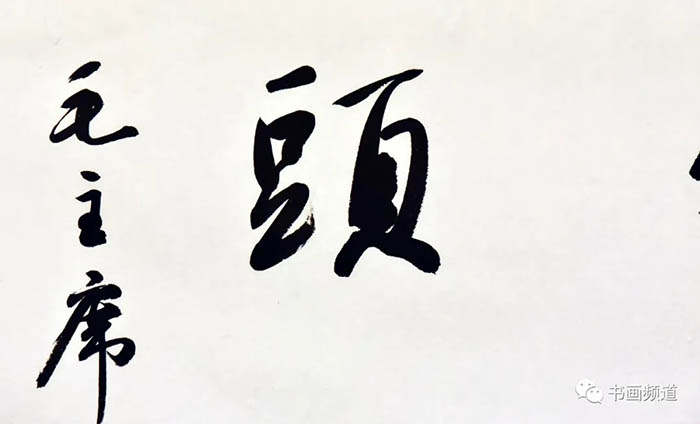 頭
毛主席
书画频道